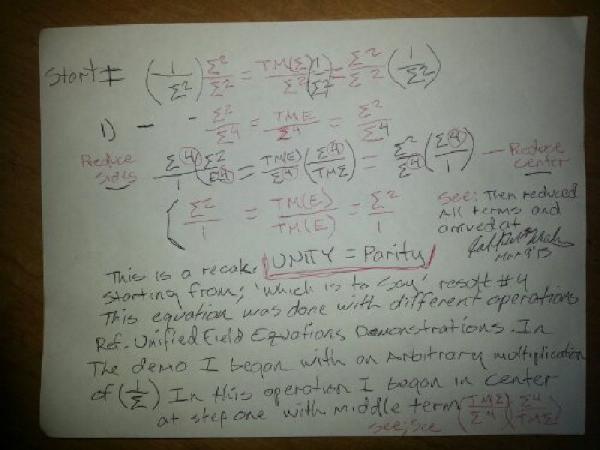 Start (1/Σ²) Σ²/Σ² = TM(Σ)/Σ² (1/Σ²) = Σ²/Σ² (1/Σ²)
1) - - Σ²/Σ⁴ = TME/Σ⁴ = Σ²/Σ⁴
Reduce sides Σ④/1 (Σ²/Σ④) = TM(E)/Σ④ (Σ④/TMΣ) = Σ²/Σ④ (Σ④/1) — Reduce center
( Σ²/1 = TM(E)/TM(E) = Σ²/1
see: Then reduced
All terms and
arrived at
UNITY = Parity
Mar 9 '13
This is a
starting from; 'which is to say' result #4
This equation was done with different operations
Ref. Unified Field Equations Demonstrations. In
The demo I began with an Arbitrary multiplication
of (1/Σ) In this operation I began in center
at step one with middle term (TMΣ/Σ⁴)(Σ⁴/TMΣ)
see; see